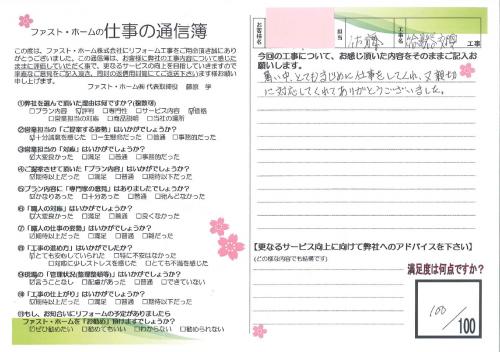 ファスト・ホームの仕事の通信簿
この度は、ファスト・ホーム株式会社にリフォーム工事をご用命頂き誠にあり
がとうございました。この通信簿は、お客様に弊社の工事内容について感じた
ままに評価していただく事で、更なるサービスの向上を目指していきますので
率直なご意見をご記入頂き、同封の返信用封筒にてご返送下さいます様お願い
申し上げます。
ファスト・ホーム㈱ 代表取締役
①弊社を選んで頂いた理由は何ですか?(複数可)
□プラン内容 ☑評判 □専門性 □サービス内容 ☑価格
□営業担当者 □商品説明 □当社の場所
②営業担当の「ご提案する姿勢」はいかがでしょうか?
☑十分誠意を感じた □一生懸命だった □普通 □事務的だった
③営業担当の「対応」はいかがでしょうか?
☑大変良かった □満足 □普通 □事務的だった
④ご提案させて頂いた「プラン内容」はいかがでしょうか?
☑期待以上だった □満足 □普通 □期待以下だった
⑤プラン内容に「専門家の意見」はありましたでしょうか?
☑かなりあった □十分あった □普通 □殆んどなかった
⑥「職人の対応」はいかがでしょうか?
☑大変良かった □満足 □普通 □良くなかった
⑦「職人の仕事の姿勢」はいかがでしょうか?
☑期待以上だった □満足 □普通 □雑だった
⑧「工事の進め方」はいかがでしたか?
☑とても安心していられた □特に不安はなかった
□対応に少しストレスを感じた □とても不満を感じた
⑨現場の「管理状況(整理整頓等)」はいかがでしょうか?
☑言うことなし □配慮があった □普通 □できていない
⑩「工事の仕上がり」はいかがでしょうか?
☑期待以上だった □満足 □普通 □期待以下だった
⑪もし、お知合いにリフォームの予定がありましたら
ファスト・ホームを「お勧め」頂けますでしょうか?
☑ぜひ勧めたい □勧めてもいい □わからない □勧められない
お客様名
担当
佐藤
工事名
工事
今回の工事について、お感じ頂いた内容をそのままご記入お
願いします。
暑い中、とてもまじめに仕事をしてくれ、又親切
に対応してくれてありがとうございました。
【更なるサービス向上に向けて弊社へのアドバイスを下さい】
(どの様な内容でも結構です)
満足度は何点ですか?
100
/100